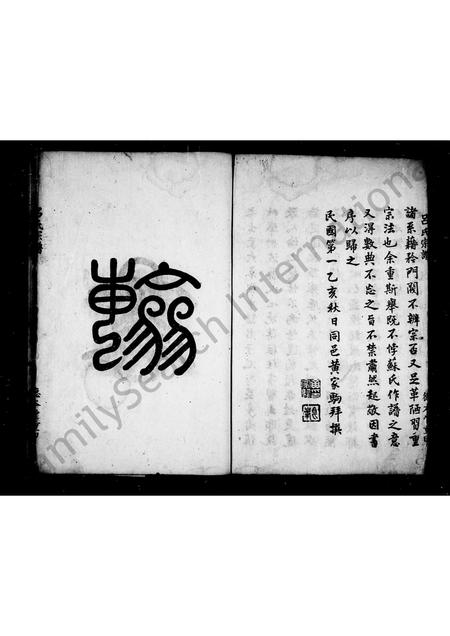 呂氏宗譜
諸系藉矜門閥不辨宗否又足革陋習重
宗法也余重斯舉既不悖蘇氏作譜之意
又得數典不忘之旨不禁肅然起敬因書
序以歸之
民國第一乙亥秋日同邑黃家駒拜撰
FamilySearch International